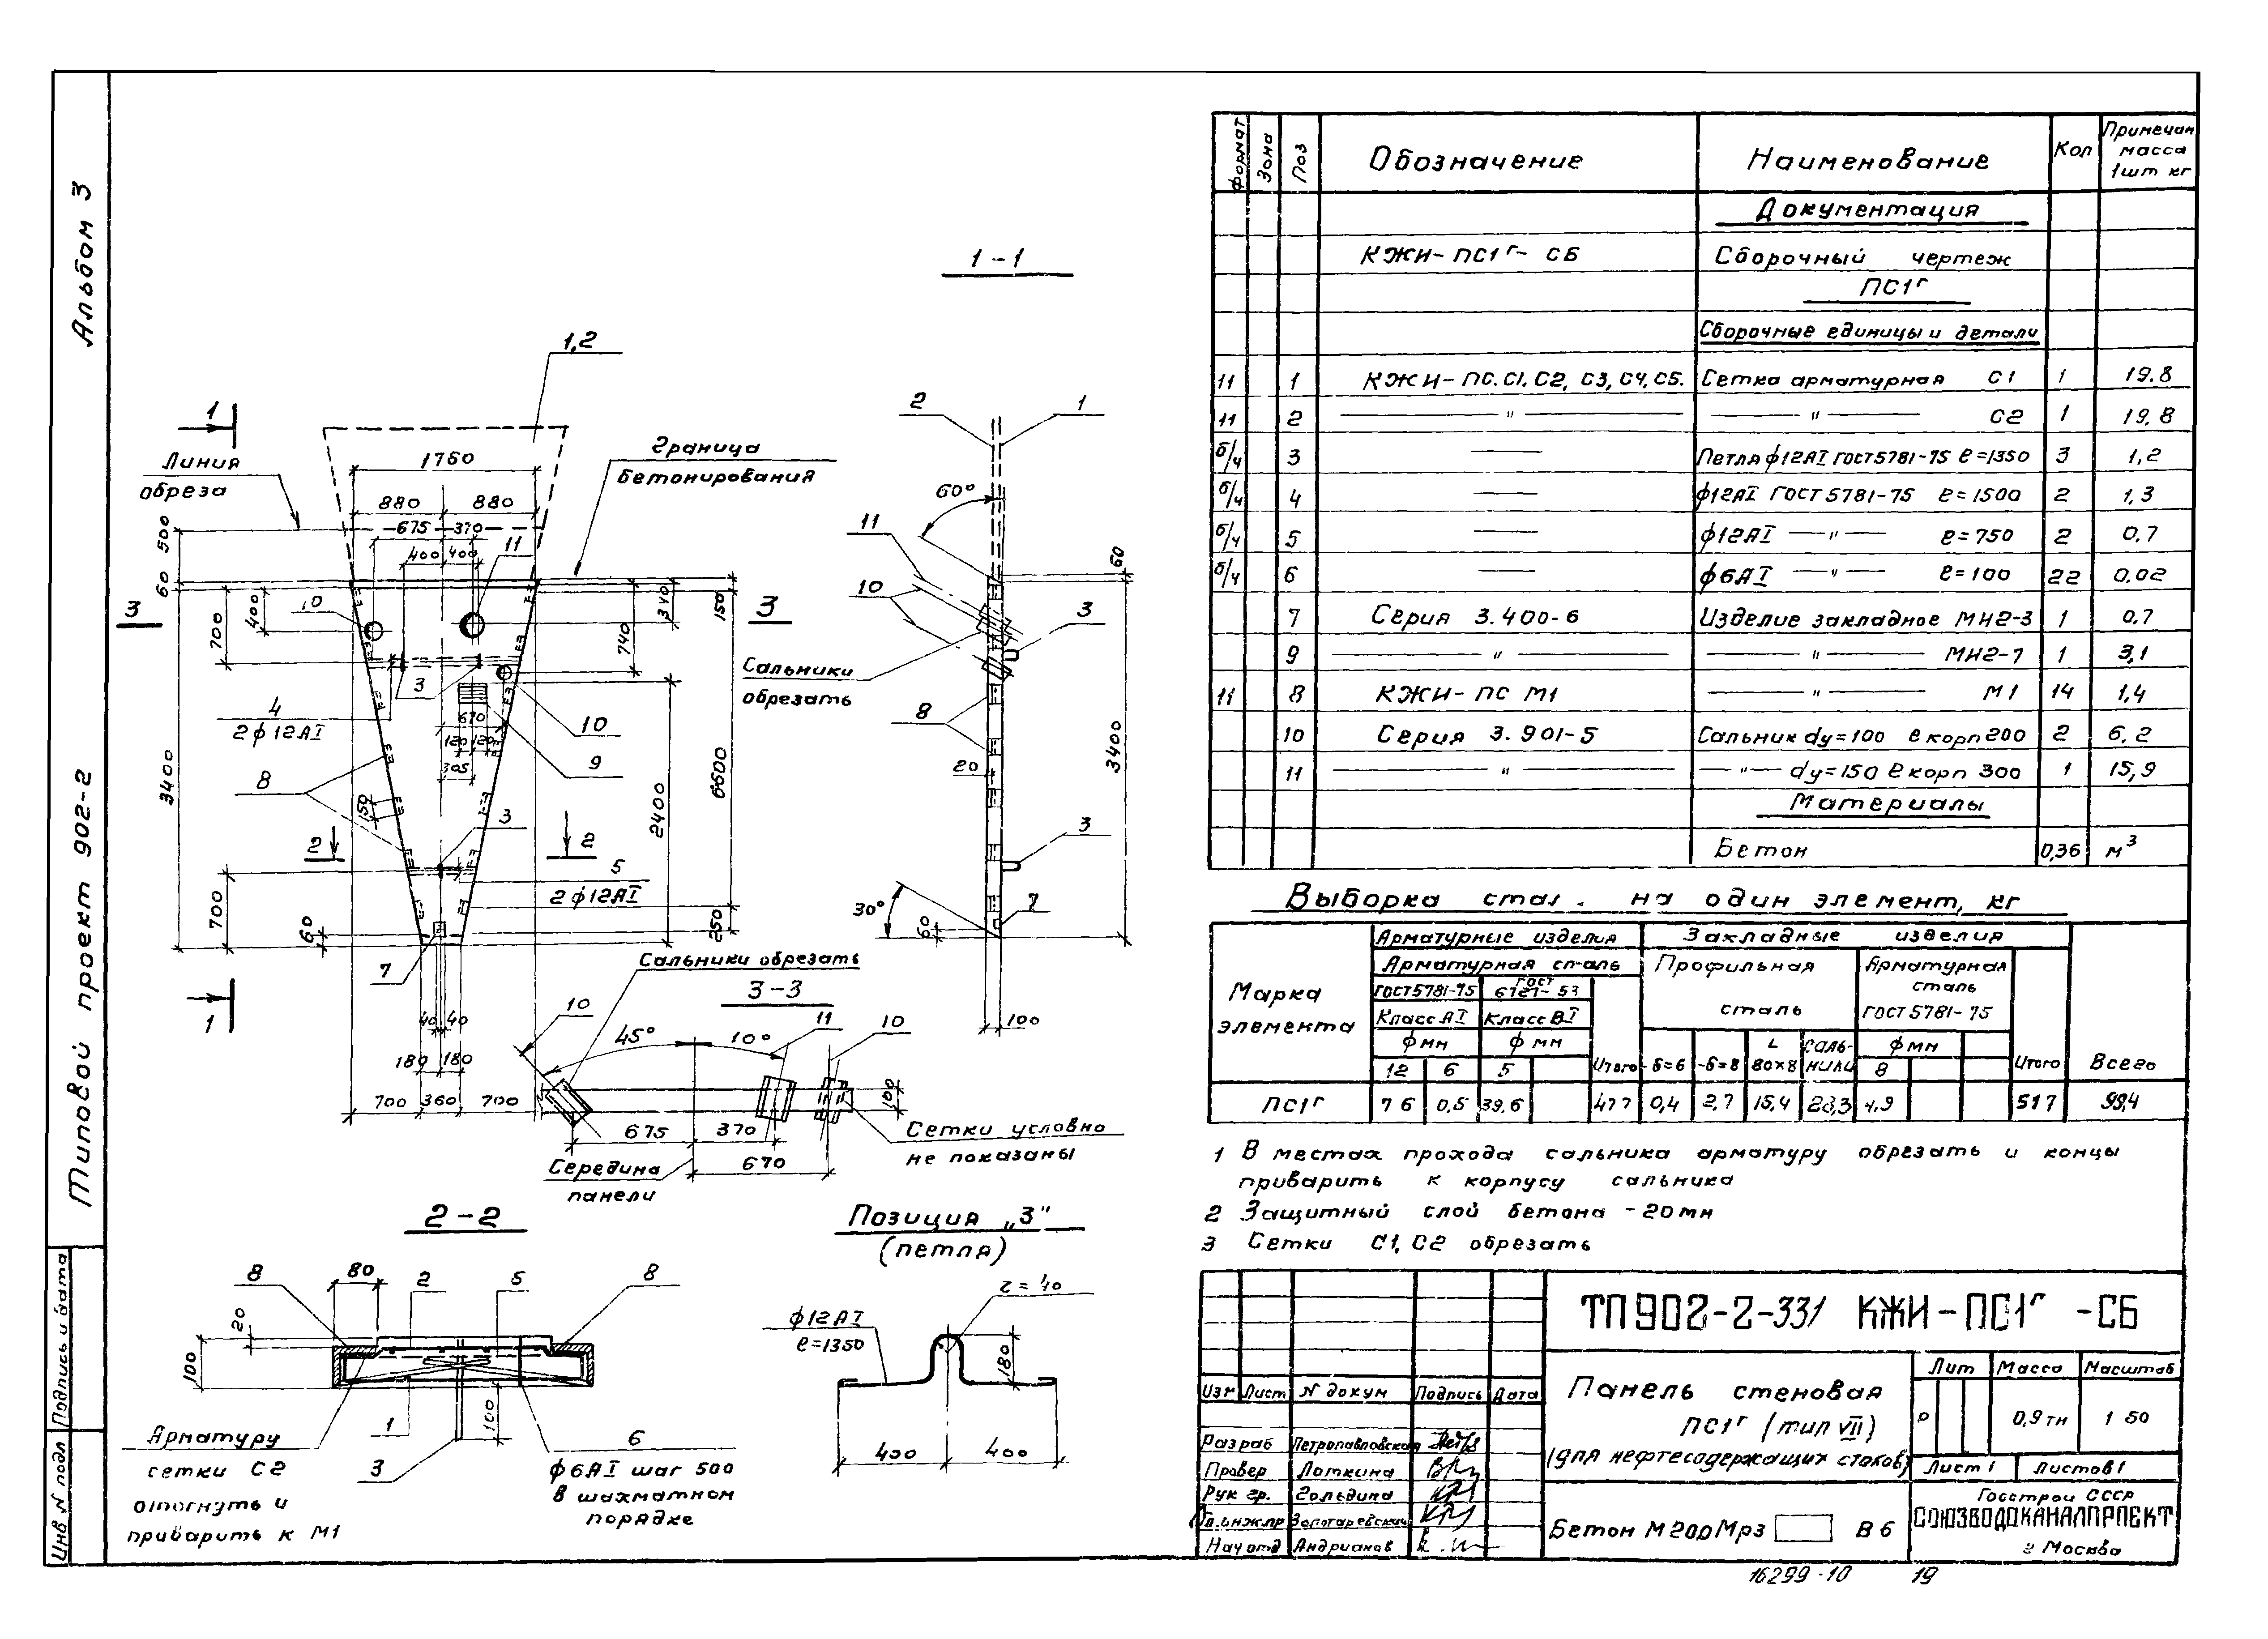 Альбом 3
Типовой проект 902-2
Инв N подл
Подпись и дата
1-1
1,2
1
Линия
обреза
1760
880
880
675
370
400
400
11
Граница
бетонирования
500
60
3
10
400
700
3
340
740
150
3
4
2ф12АI
670
120
120
305
10
9
8
150
3400
6600
2400
3
2
2
5
2ф12АI
700
60
250
7
1
40
40
180
180
700
360
700
2
1
60°
11
10
60
3
Сальники
обрезать
8
20
3400
3
30°
60
7
100
Сальники обрезать
3-3
10
45°
10°
11
10
100
675
370
670
Середина
панели
Сетки условно
не показаны
2-2
8
80
2
5
8
20
100
1
3
100
6
ф6АI шаг 500
в шахматном
порядке
Арматуру
сетки С2
отогнуть и
приварить к М1
Позиция „3"
(петля)
r=40
ф12АI
ℓ=1350
180
400
400
Формат Зона Поз Обозначение Наименование Кол Примечан масса 1шт кг
Документация
КЖИ-ПС1г-СБ Сборочный чертеж
ПС1г
Сборочные единицы и детали
11 1 КЖИ-ПС.С1, С2, С3, С4, С5. Сетка арматурная С1 1 19.8
11 2 — " — — " — С2 1 19,8
б/ч 3 — Петля ф12АI ГОСТ5781-75 ℓ=1350 3 1,2
б/ч 4 — ф12АI ГОСТ 5781-75 ℓ=1500 2 1,3
б/ч 5 — ф12АI — " — ℓ=750 2 0,7
б/ч 6 — ф6АI — " — ℓ=100 22 0,02
7 Серия 3.400-6 Изделие закладное МН2-3 1 0,7
9 — " — — " — МН2-7 1 3,1
11 8 КЖИ-ПС М1 — " — М1 14 1,4
10 Серия 3.901-5 Сальник dy=100 ℓ корп 200 2 6,2
11 — " — — " — dy=150 ℓ корп 300 1 15,9
Материалы
Бетон 0,36 м³
Выборка стал . на один элемент, кг
Марка элемента
Арматурные изделия Закладные изделия
Арматурная сталь Профильная сталь Арматурная сталь ГОСТ 5781-75
ГОСТ5781-75 ГОСТ 6727-53
Класс АI Класс ВI
ф мм ф мм ф мм
12 6 5 Итого -δ=6 -δ=8 L 80×8 Сальники 8 Итого Всего
ПС1г 7 6 0,5 39,6 47 7 0,4 2,7 15,4 28,3 4,9 51 7 99,4
1 В местах прохода сальника арматуру обрезать и концы
приварить к корпусу сальника
2 Защитный слой бетона - 20мм
3 Сетки С1, С2 обрезать
ТП902-2-331 КЖИ-ПС1г -СБ
Изм Лист N докум Подпись Дата
Разраб Петропавловская
Провер Лоткина
Рук гр. Гольдина
Гл.инж.пр Золотаревский
Нач отд Андрианов
Панель стеновая
ПС1г (тип VII)
(для нефтесодержащих стоков)
Лит Масса Масштаб
Р 0,9 тн 1 50
Лист 1 Листов 1
Бетон М200 Мрз В6
Госстрой СССР
СОЮЗВОДОКАНАЛПРОЕКТ
г Москва
16299-10 19